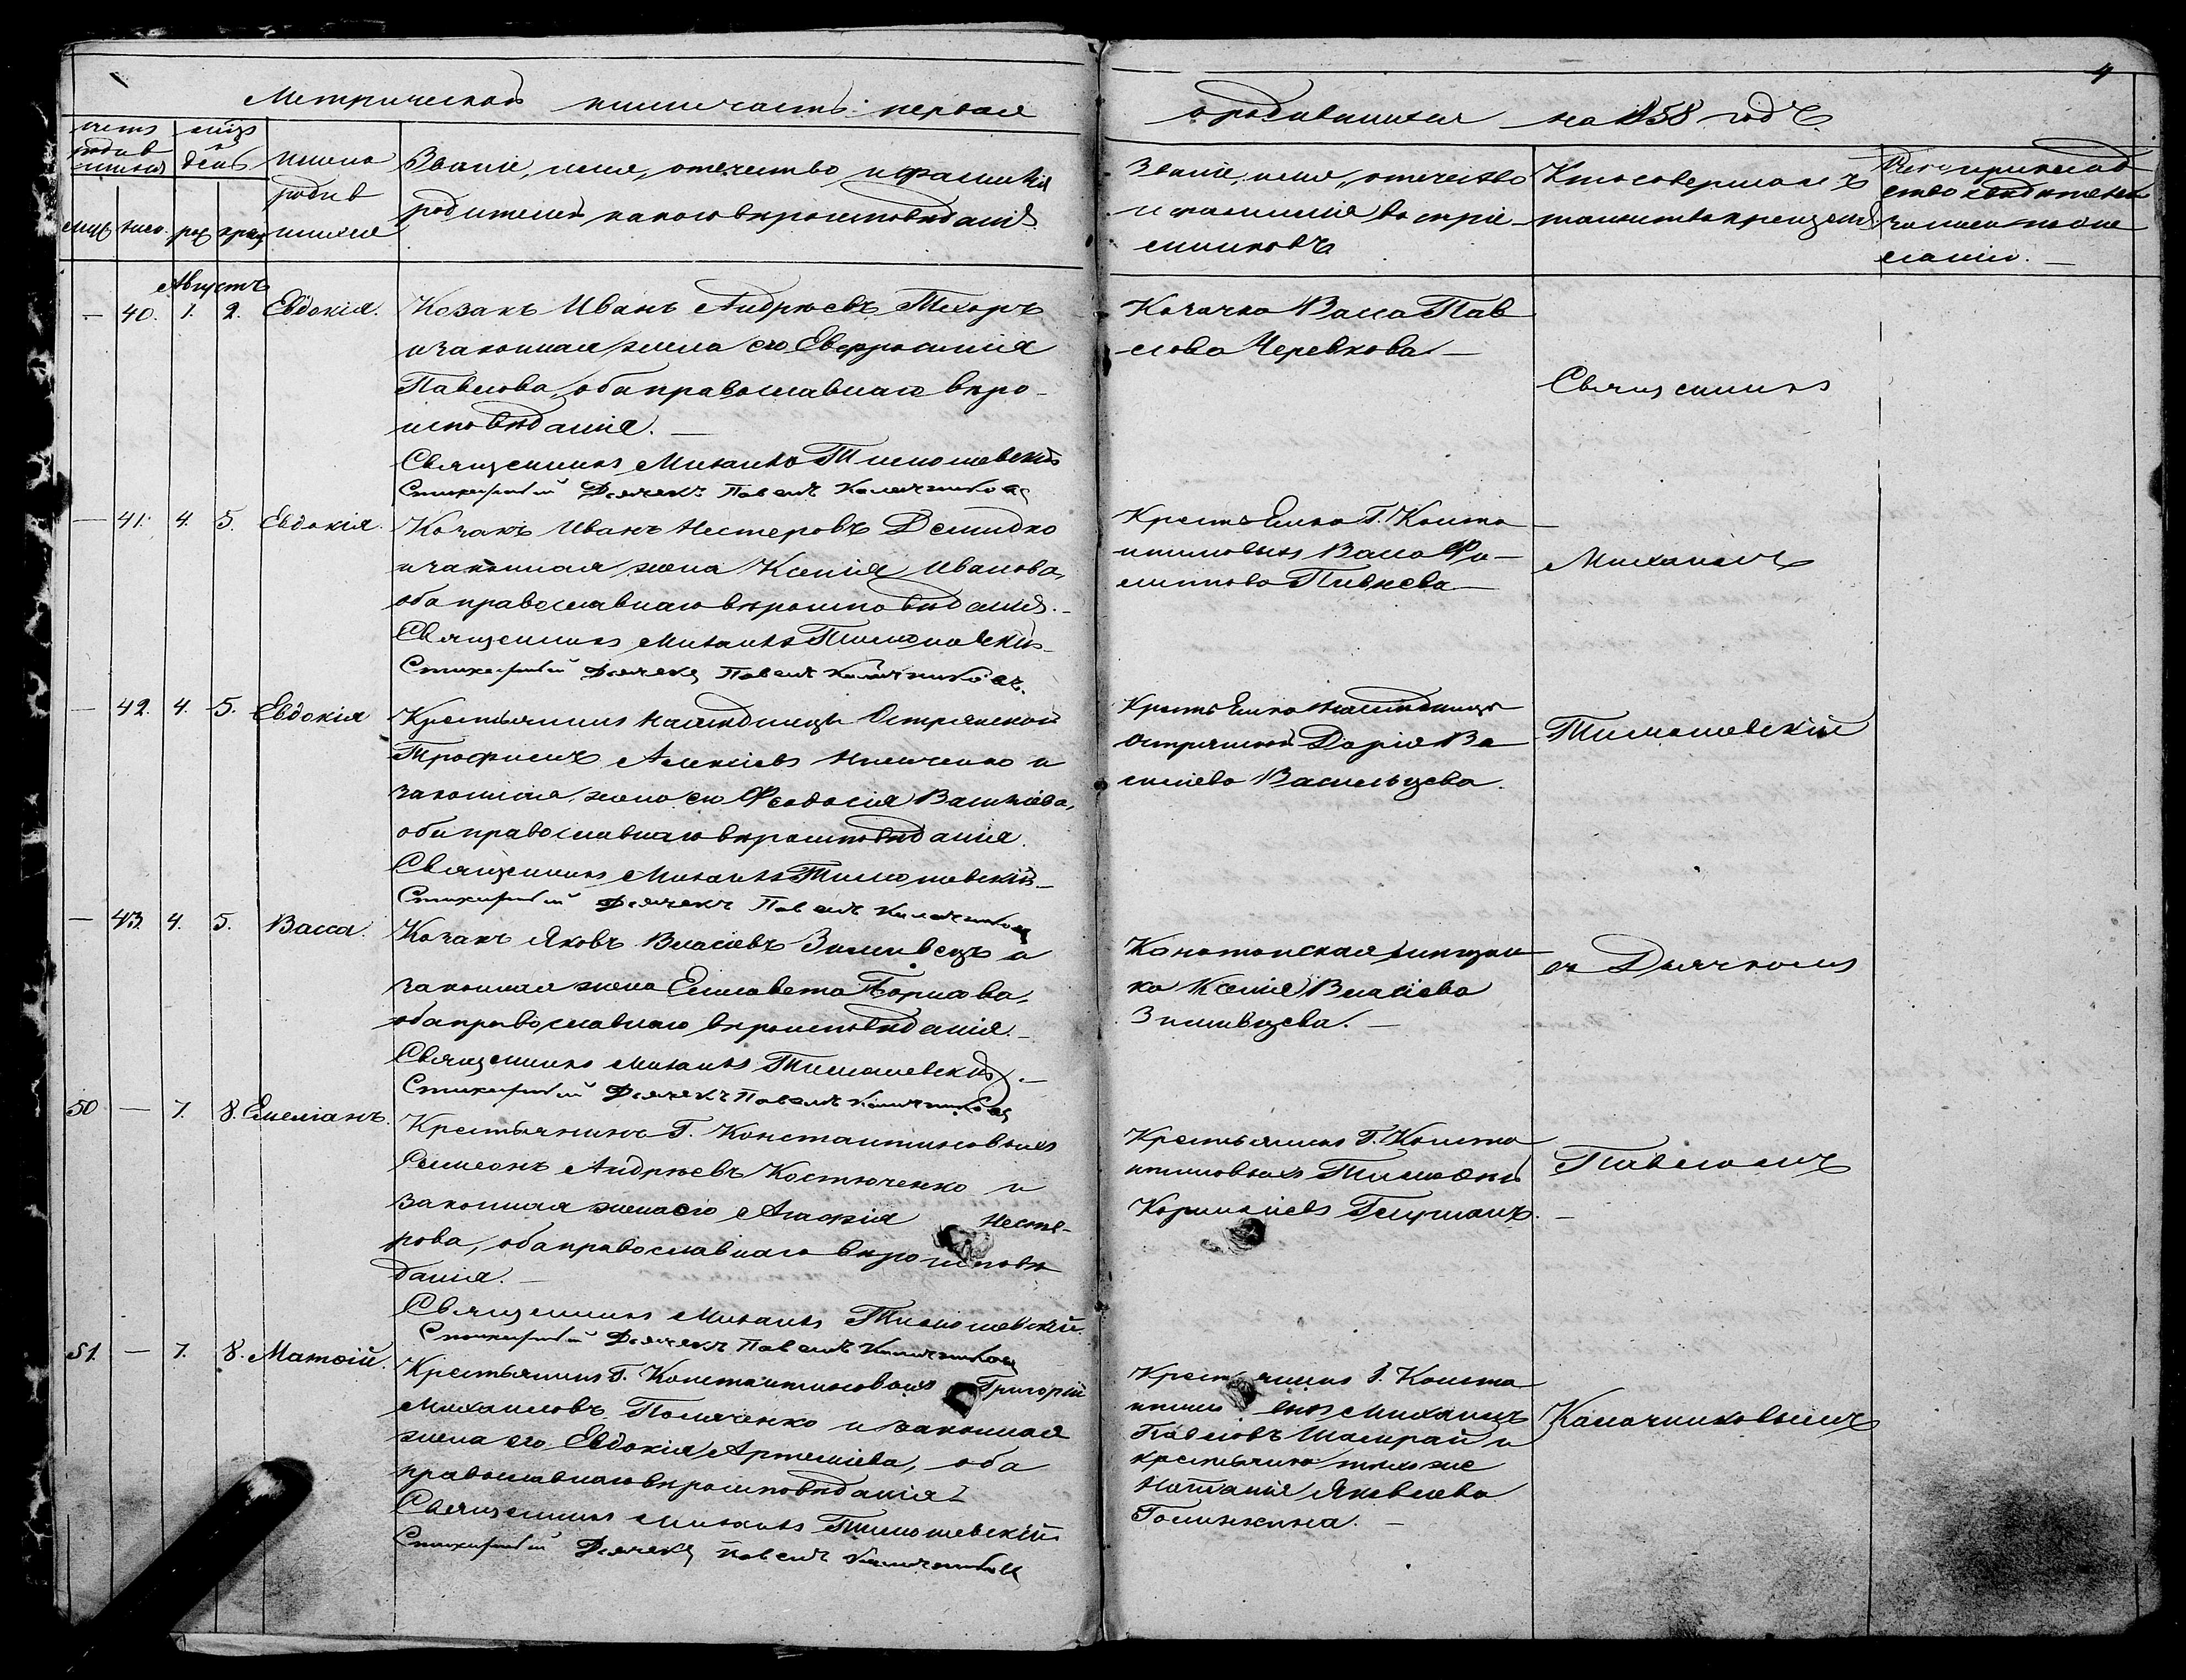 Метрической книги часть первая
о родившихся на 1858 годъ.
4
Счетъ родившихся
мѣсяцъ и день
Имена родившихся
Званіе, имя, отечество и фамилія
родителей и какого вѣроисповѣданія.
муж. женс. рож. крещ.
Званіе, имя, отечество
и фамилія воспріемниковъ
Кто совершалъ
таинство крещенія
Рукоприкладство свидетелей
записи по желанію.
Августъ
— 40. 1. 2. Евдокія.
Козакъ Иванъ Андрѣевъ Техоръ
и законная жена его Евфросинія
Павлова, оба православнаго вѣро-
исповѣданія. —
Священникъ Михаилъ Тимошевскій
Стихарный Дьячекъ Павелъ Калачников
Козачка Васса Пав
лова Черевкова. —
Священникъ
— 41. 4. 5. Евдокія.
Козакъ Иванъ Нестеровъ Демидко
и законная жена Ксенія Иванова,
оба православнаго вѣроисповѣданія. —
Священникъ Михаилъ Тимошевскій
Стихарный Дьячекъ Павелъ Калачниковъ.
Крестьянка Г. Конста-
нтиновыхъ Васса Фи-
липпова Пивнева —
Михаилъ
— 42. 4. 5. Евдокія
Крестьянинъ наслѣдницы Остринской
Трофимъ Алексіевъ Ильченко и
законная жена его Феодосія Василіева,
оба православнаго вѣроисповѣданія.
Священникъ Михаилъ Тимошевскій —
Стихарный Дьячекъ Павелъ Калачников
Крестьянка наслѣдницы
Остринской Дарія Ва
силіева Васильцева.
Тимошевскій
— 43. 4. 5. Васса.
Козакъ Яковъ Власіевъ Зимивецъ и
законная жена Елисавета Борисова,
оба православнаго вѣроисповѣданія. —
Священникъ Михаилъ Тимошевскій. —
Стихарный Дьячекъ Павелъ Калачников
Конотопская мещан
ка Ксенія Власіева
Зимивцева. —
съ Дьячкомъ
50 — 7. 8. Емеліанъ.
Крестьянинъ Г. Константиновыхъ
Симеонъ Андрѣевъ Костюченко и
законная жена его Агафія Несте-
рова, оба православнаго вѣроисповѣ
данія. —
Священникъ Михаилъ Тимошевскій.
Стихарный Дьячекъ Павелъ Калачников
Крестьянинъ Г. Конста
нтиновыхъ Тимофей
Корниліевъ Гецманъ. —
Павломъ
51. — 7. 8. Матѳій.
Крестьянинъ Г. Константиновыхъ Григорій
Михаиловъ Поляченко и законная
жена его Евдокія Артеміева, оба
православнаго вѣроисповѣданія —
Священникъ Михаилъ Тимошевскій
Стихарный Дьячекъ Павелъ Калачников
Крестьянинъ Г. Конста
нтиновыхъ Михаилъ
Павловъ Шамрай и
крестьянка тѣхъ же
Наталія Яковлева
Голинкина. —
Калачниковымъ